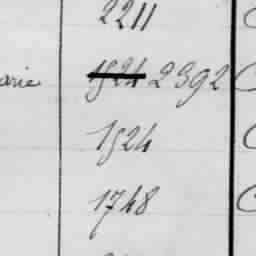 2211
arie 1524 2392
1524
1748